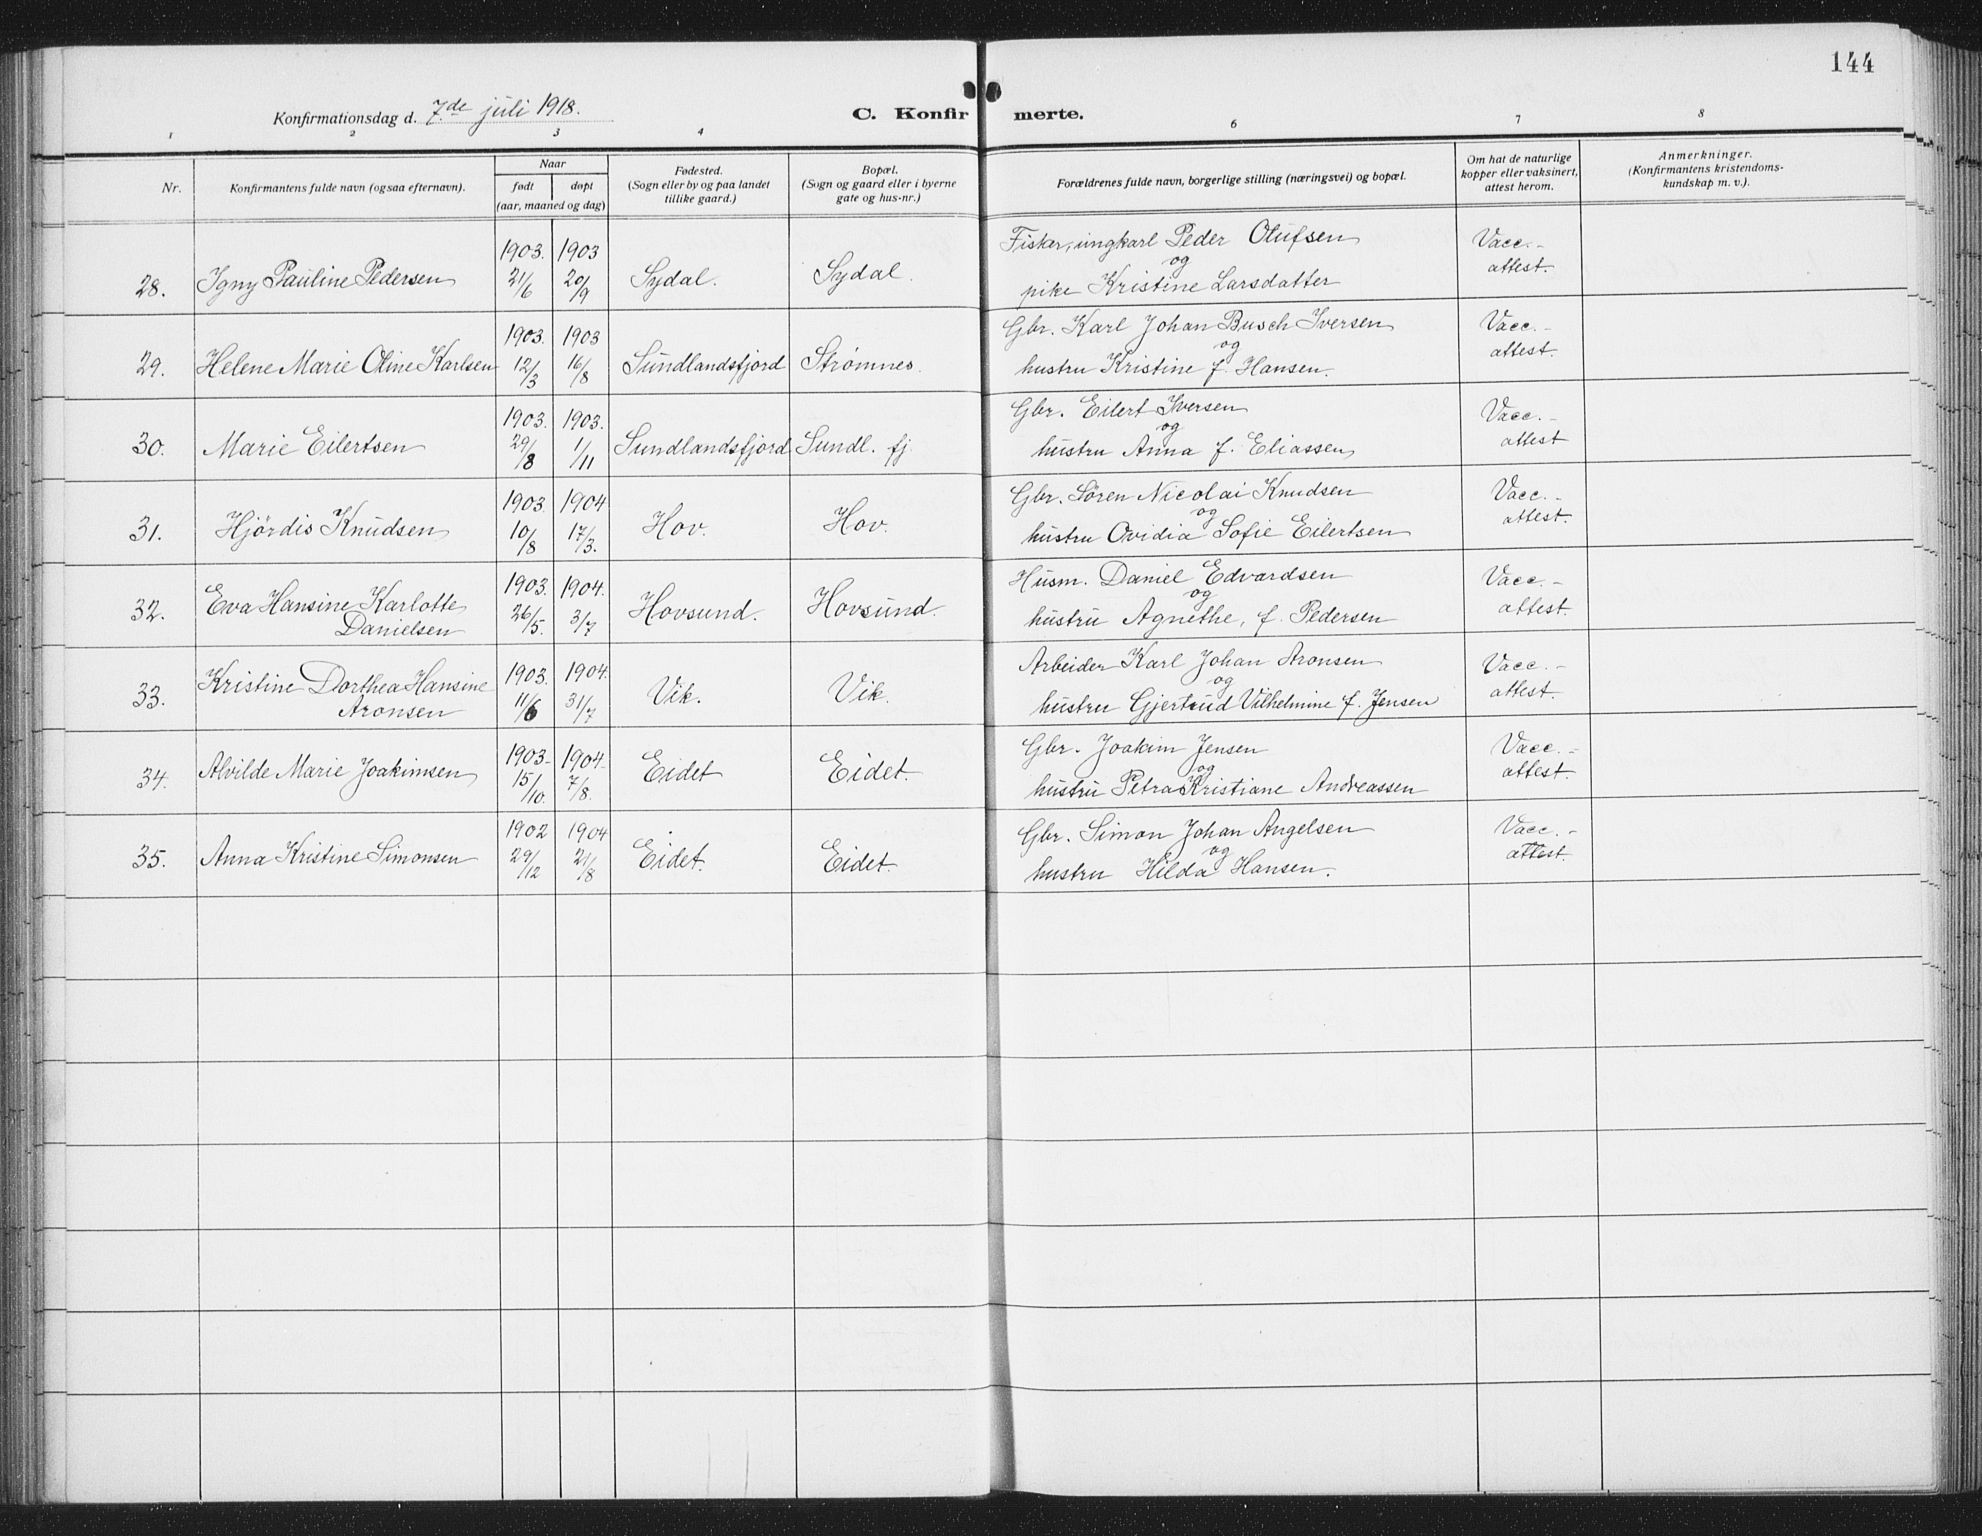 144
Konfirmationsdag d. 7.de juli 1918.
C. Konfirmerte.
1 2 3 4 6 7 8
Nr.
Konfirmantens fulde navn (ogsaa efternavn).
Naar
født døpt
(aar, maaned og dag)
Fødested.
(Sogn eller by og paa landet
tillike gaard.)
Bopæl.
(Sogn og gaard eller i byerne
gate og hus-nr.)
Forældrenes fulde navn, borgerlige stilling (næringsvei) og bopæl.
Om hat de naturlige
kopper eller vaksinert,
attest herom.
Anmerkninger.
(Konfirmantens kristendoms-
kundskap m. v.).
28. Igny Pauline Pedersen 1903. 21/6 1903 20/9 Sydal. Sydal. Fisker, ungkarl Peder Olufsen
og
pike Kristine Larsdatter
Vacc.-
attest.
29. Helene Marie Oline Karlsen 1903. 12/3 1903 16/8 Sundlandsfjord Strømnes. Gbr. Karl Johan Busch Iversen
og
hustru Kristine f. Hansen.
Vacc.-
attest.
30. Marie Eilertsen 1903. 29/8 1903. 1/11 Sundlandsfjord Sundl. fj. Gbr. Eilert Iversen
og
hustru Anna f. Eliassen
Vacc.-
attest
31. Hjördis Knudsen 1903. 10/8 1904 17/3. Hov. Hov. Gbr. Sören Nicolai Knudsen
og
hustru Ovidia Sofie Eilertsen
Vacc.-
attest.
32. Eva Hansine Karlotte
Danielsen 1903. 26/5. 1904. 3/7 Hovsund. Hovsund. Husm. Daniel Edvardsen
og
hustru Agnethe, f. Pedersen
Vacc.-
attest.
33. Kristine Dorthea Hansine
Aronsen 1903. 11/6 1904. 31/7 Vik. Vik. Arbeider Karl Johan Aronsen
og
hustru Gjertrud Vilhelmine f. Jensen
Vacc.-
attest.
34. Alvilde Marie Joakimsen 1903- 15/10. 1904- 7/8. Eidet Eidet. Gbr. Joakim Jensen
og
hustru Petra Kristiane Andreassen
Vacc.-
attest.
35. Anna Kristine Simonsen 1902 29/12 1904 21/8 Eidet. Eidet. Gbr. Simon Johan Angelsen
og
hustru Hilda Hansen.
Vacc.-
attest.